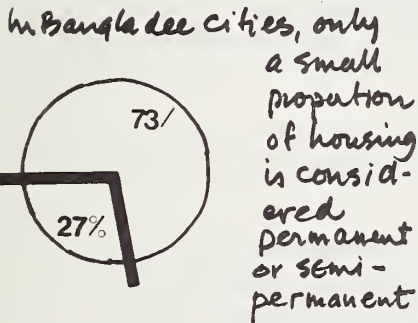 In Bangladee cities, only
a small
propution
of housing
is consid-
ered
permanent
or semi-
permanent
73/
27%